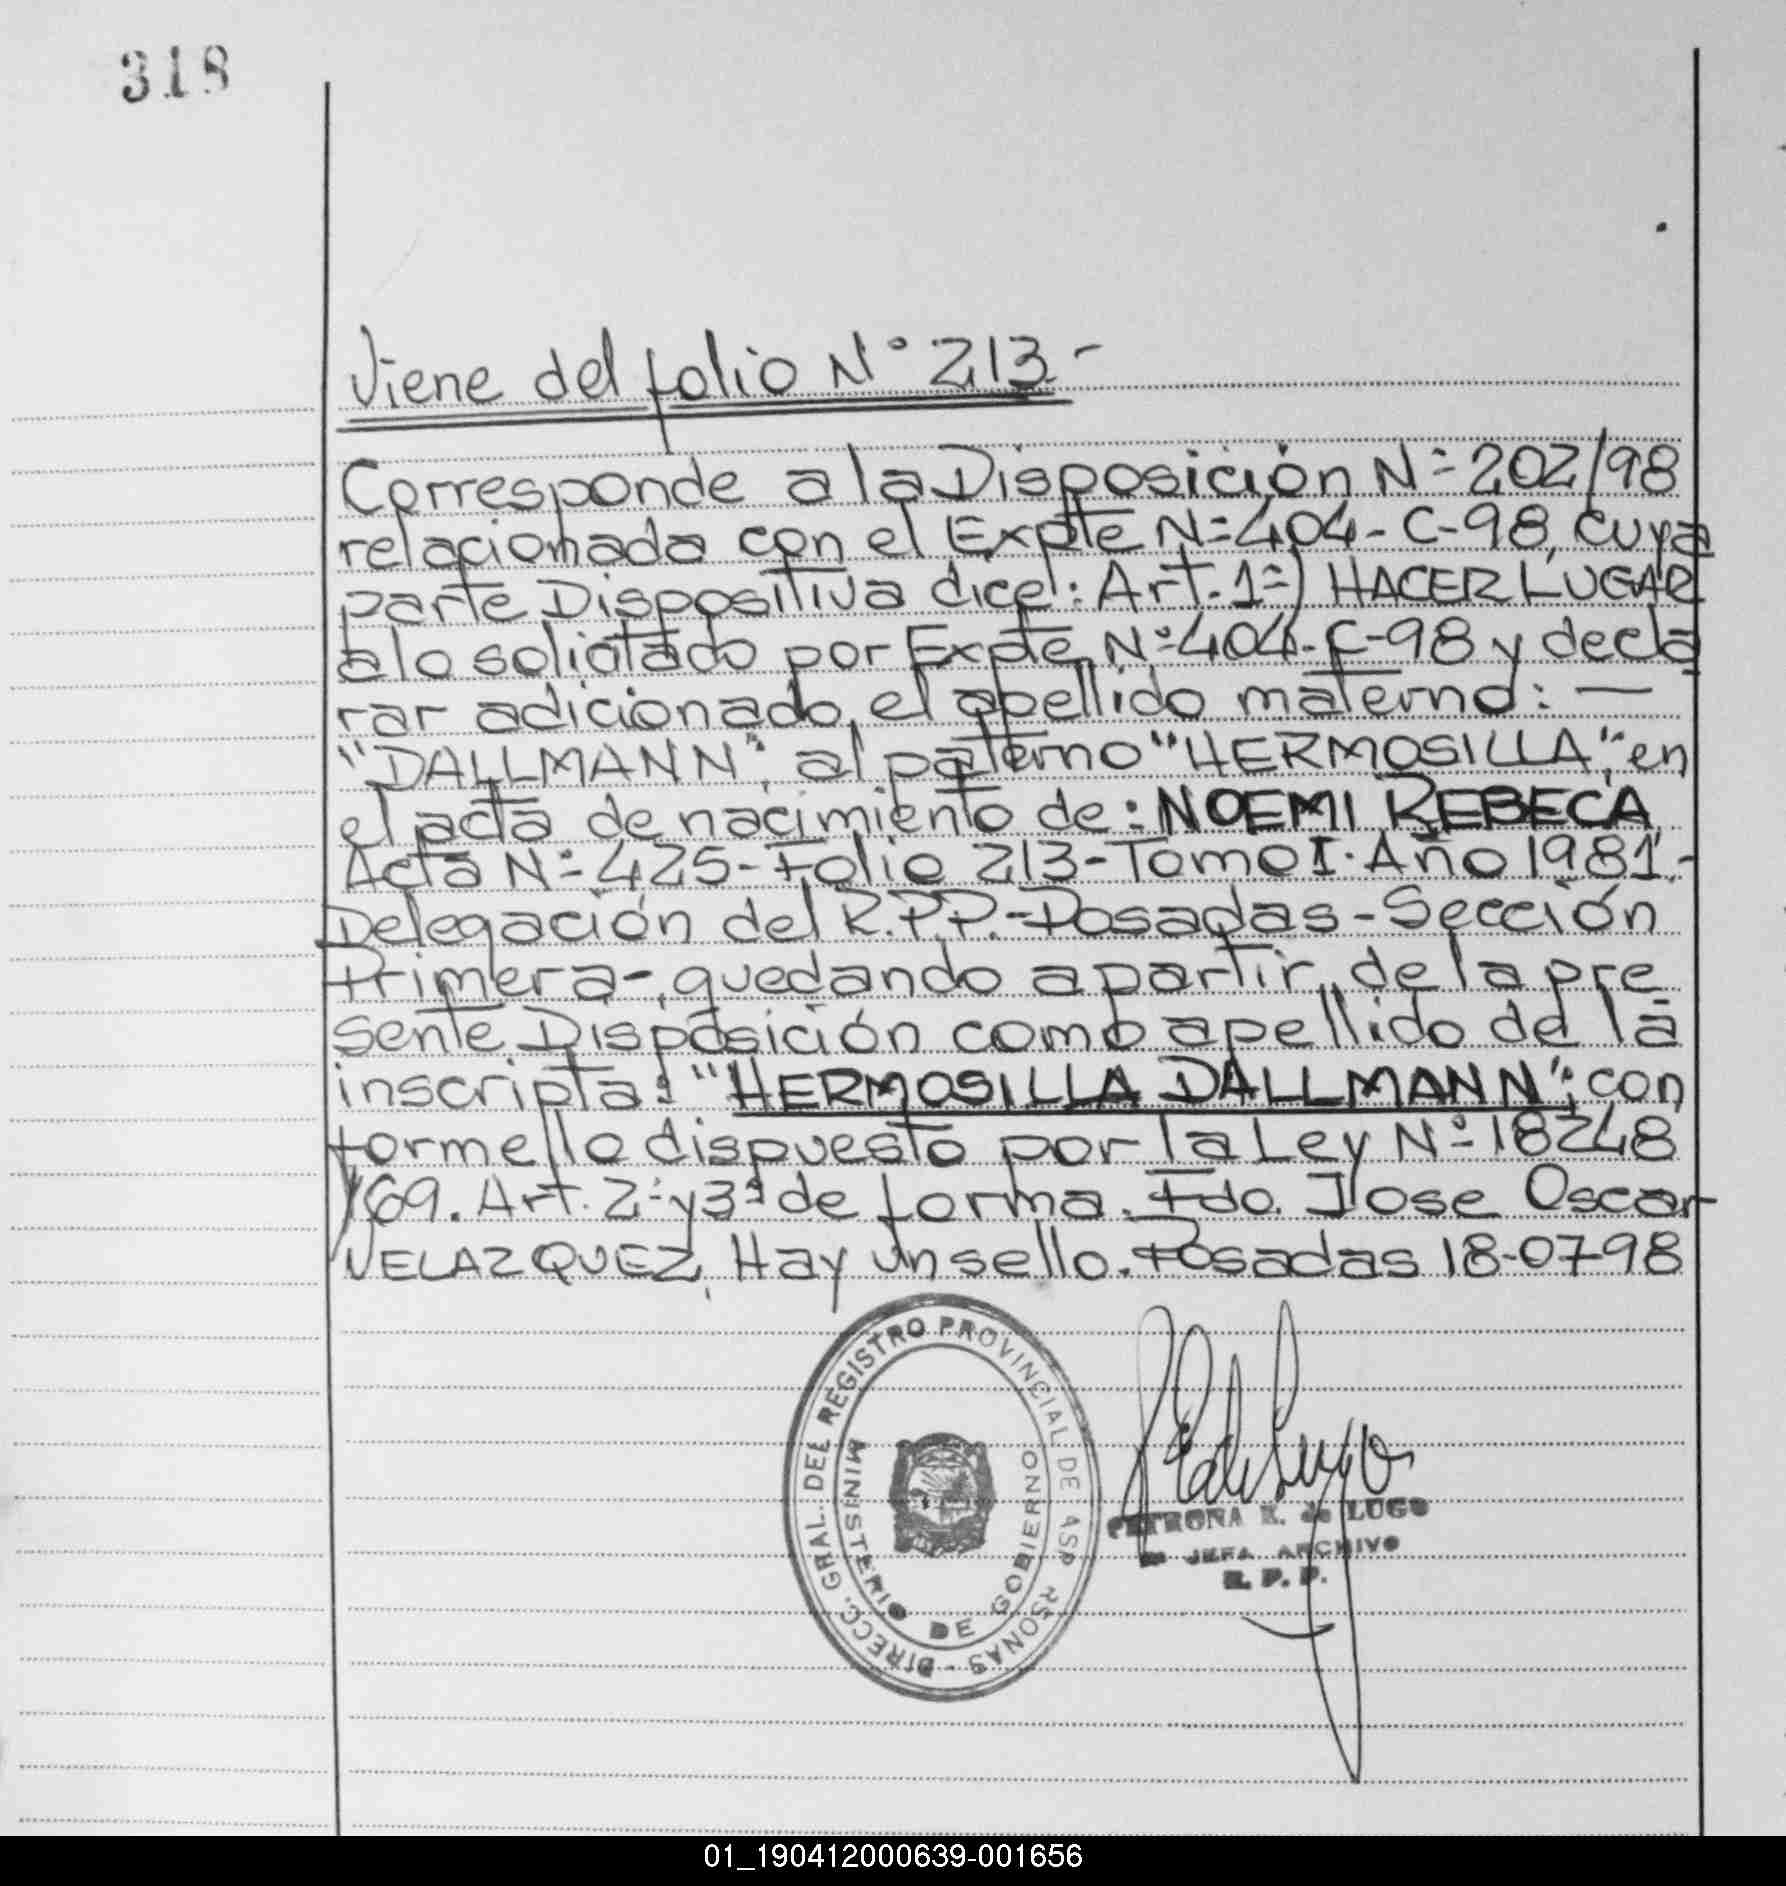 318
Viene del folio N° 213.-
Corresponde a la Disposición N° 202/98
relacionada con el Expte N° 404-C-98, cuya
parte Dispositiva dice: Art. 1°) HACER LUGAR
a lo solicitado por Expte N° 404-C-98 y decla
rar adicionado el apellido materno: —
"DALLMANN", al paterno "HERMOSILLA", en
el acta de nacimiento de: NOEMI REBECA
Acta N° 425-Folio 213-Tomo I. Año 1981.-
Delegación del R.P.P.-Posadas-Sección
Primera-, quedando a partir de la pre
sente Disposición como apellido de la
inscripta: "HERMOSILLA DALLMANN"; con
forme lo dispuesto por la Ley N° 18248
/69. Art. 2° y 3° de forma. Fdo. Jose Oscar
VELAZQUEZ, Hay un sello. Posadas 18-07-98
DIRECC. GRAL. DEL REGISTRO PROVINCIAL DE LAS P RSONAS -
MINISTERIO DE GOBIERNO
PETRONA E. de LUGO
JEFA ARCHIVO
R. P. P.
01_190412000639-001656